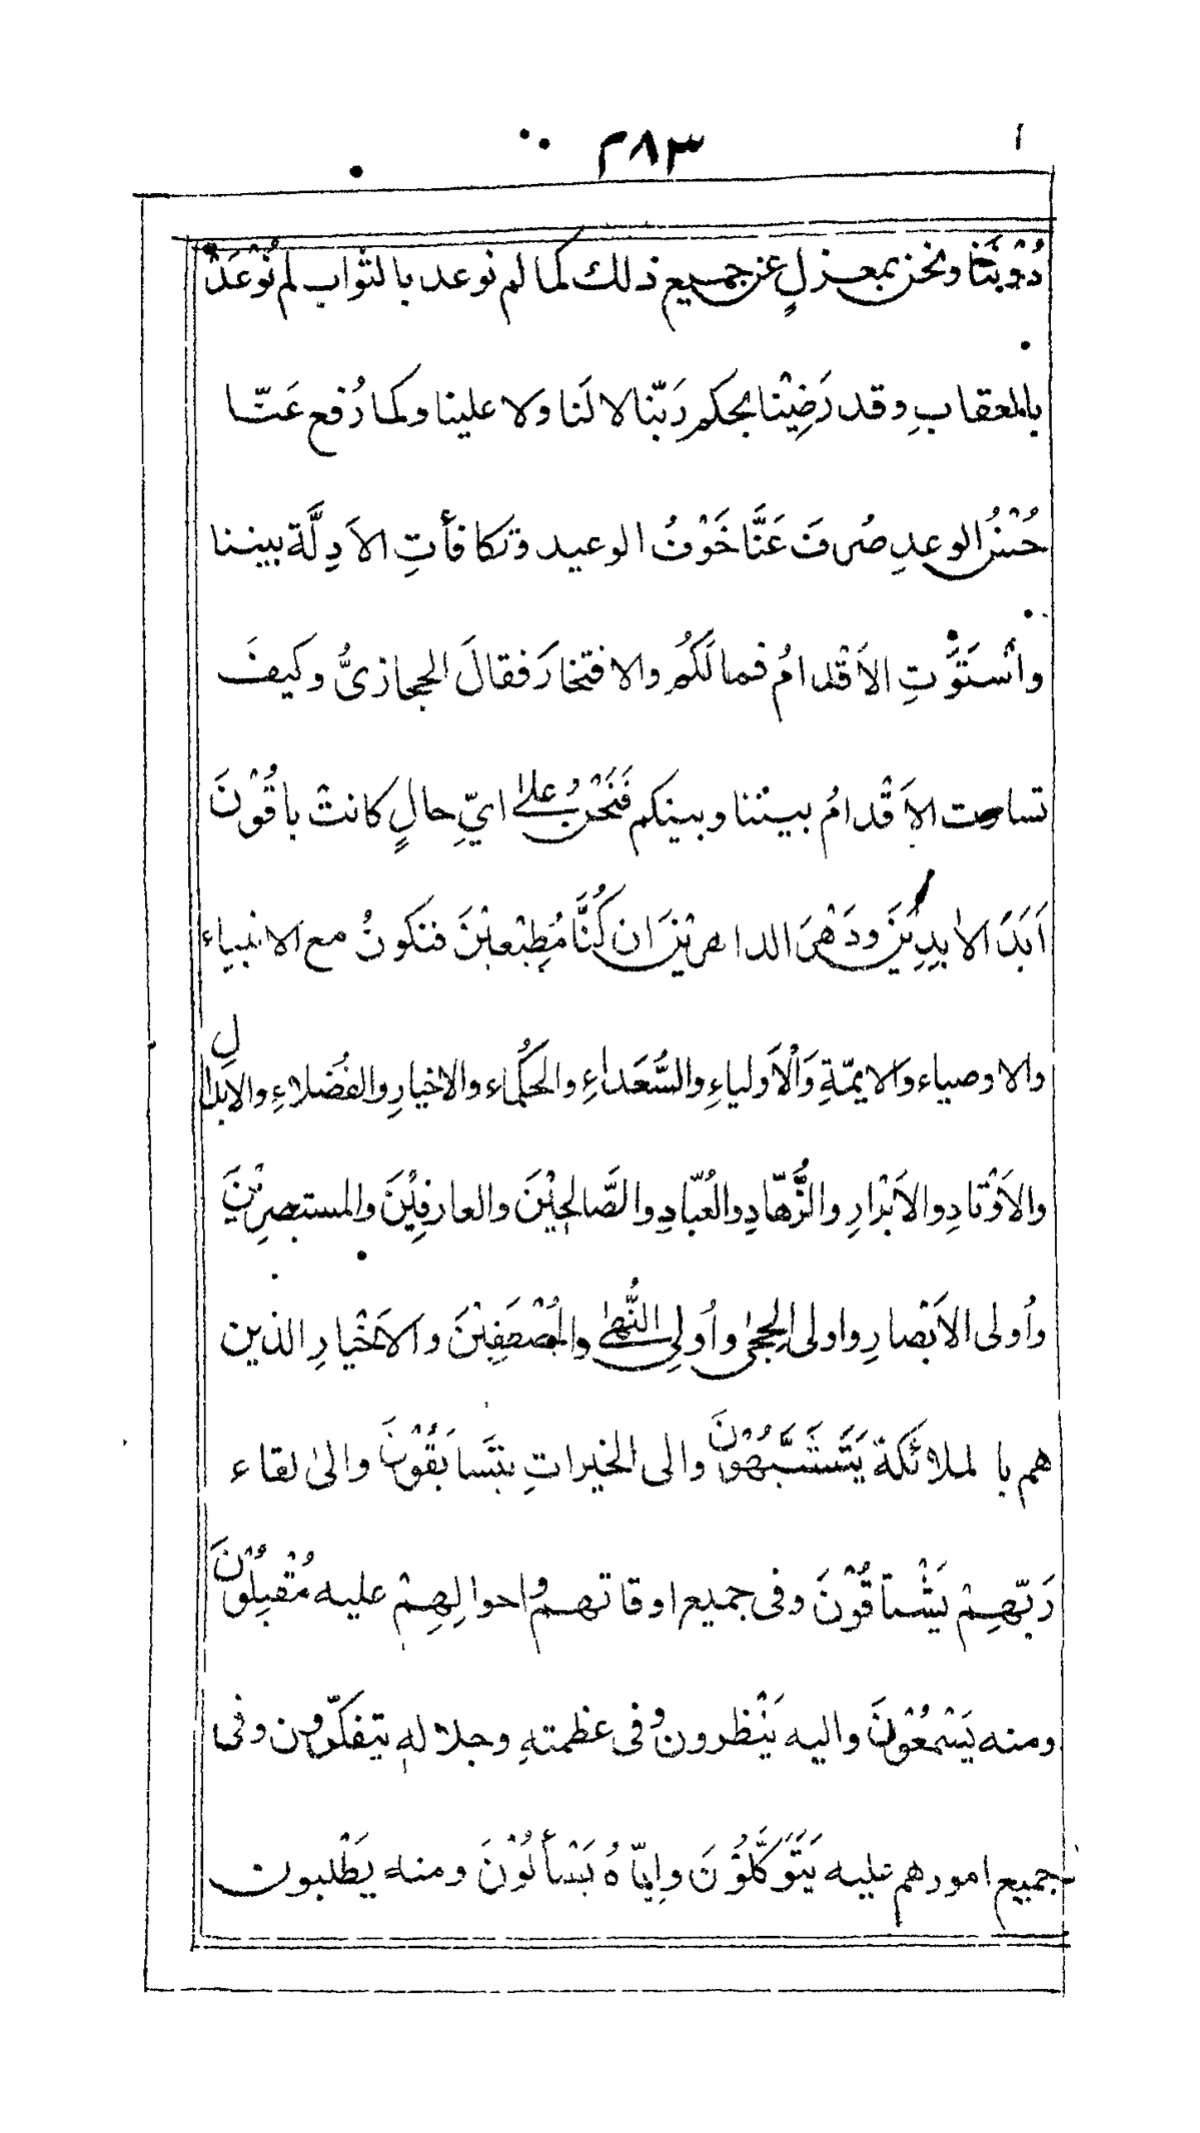 ٢٨٣
دُوْنَنَا ونحن بمعزلٍ عن جميع ذلك كما لم نوعد بالثواب لم نُوْعَدْ
بالعقابِ وقد رَضِيْنا بحكم رَبّنا لا لَنا ولا علينا وكما رُفع عَنّا
حُسْنُ الوعدِ صُرِفَ عَنَّا خَوْفُ الوعيد وتكافأتِ الاَدِلَّة بيننا
واسْتَوَّتِ الاَقْدامُ فما لَكُم والافتخارَ فقالَ الحجازىُّ وكيفَ
تساوت الاَقْدامُ بيننا وبينكم فَنَحْنُ على ايِّ حالٍ كانتْ باقُوْنَ
اَبَدَ الاٰبِدِيْنَ ودَهْرَ الداهرِيْنَ ان كُنَّا مُطِيْعِيْنَ فنكونُ مع الانبياء
والاوصياء والايمّةِ وَالْاَولياءِ والسُّعَداءِ والحُكَماء والاخيارِ والفُضَلاءِ والابدالِ
والاَوْتادِ والاَبْرارِ والزُّهّادِ والعُبّادِ والصَّالحِيْنَ والعارفِيْنَ والمستبصرِيْنَ
واُولى الاَبْصارِ واولى الحِجىٰ واُولِى النُّهىٰ والمُصْطَفِيْنَ والاَخْيارِ الذين
هم بالملائكة يَتَشَبَّهُوْنَ والى الخيراتِ يتَسابَقُوْنَ والىٰ لقاء
رَبّهِمْ يَشْتاقُوْنَ وفى جميع اوقاتهم واحوالِهِمْ عليه مُقْبِلُوْنَ
ومنه يَسْمَعُوْنَ واليه يَنْظرون وفى عظمتهِ وجلالهِ يتفكّرون وفى
جميع امورهم عليه يَتَوَكَّلُوْنَ واِيّاهُ يَسْأَلُوْنَ ومنه يَطْلبون